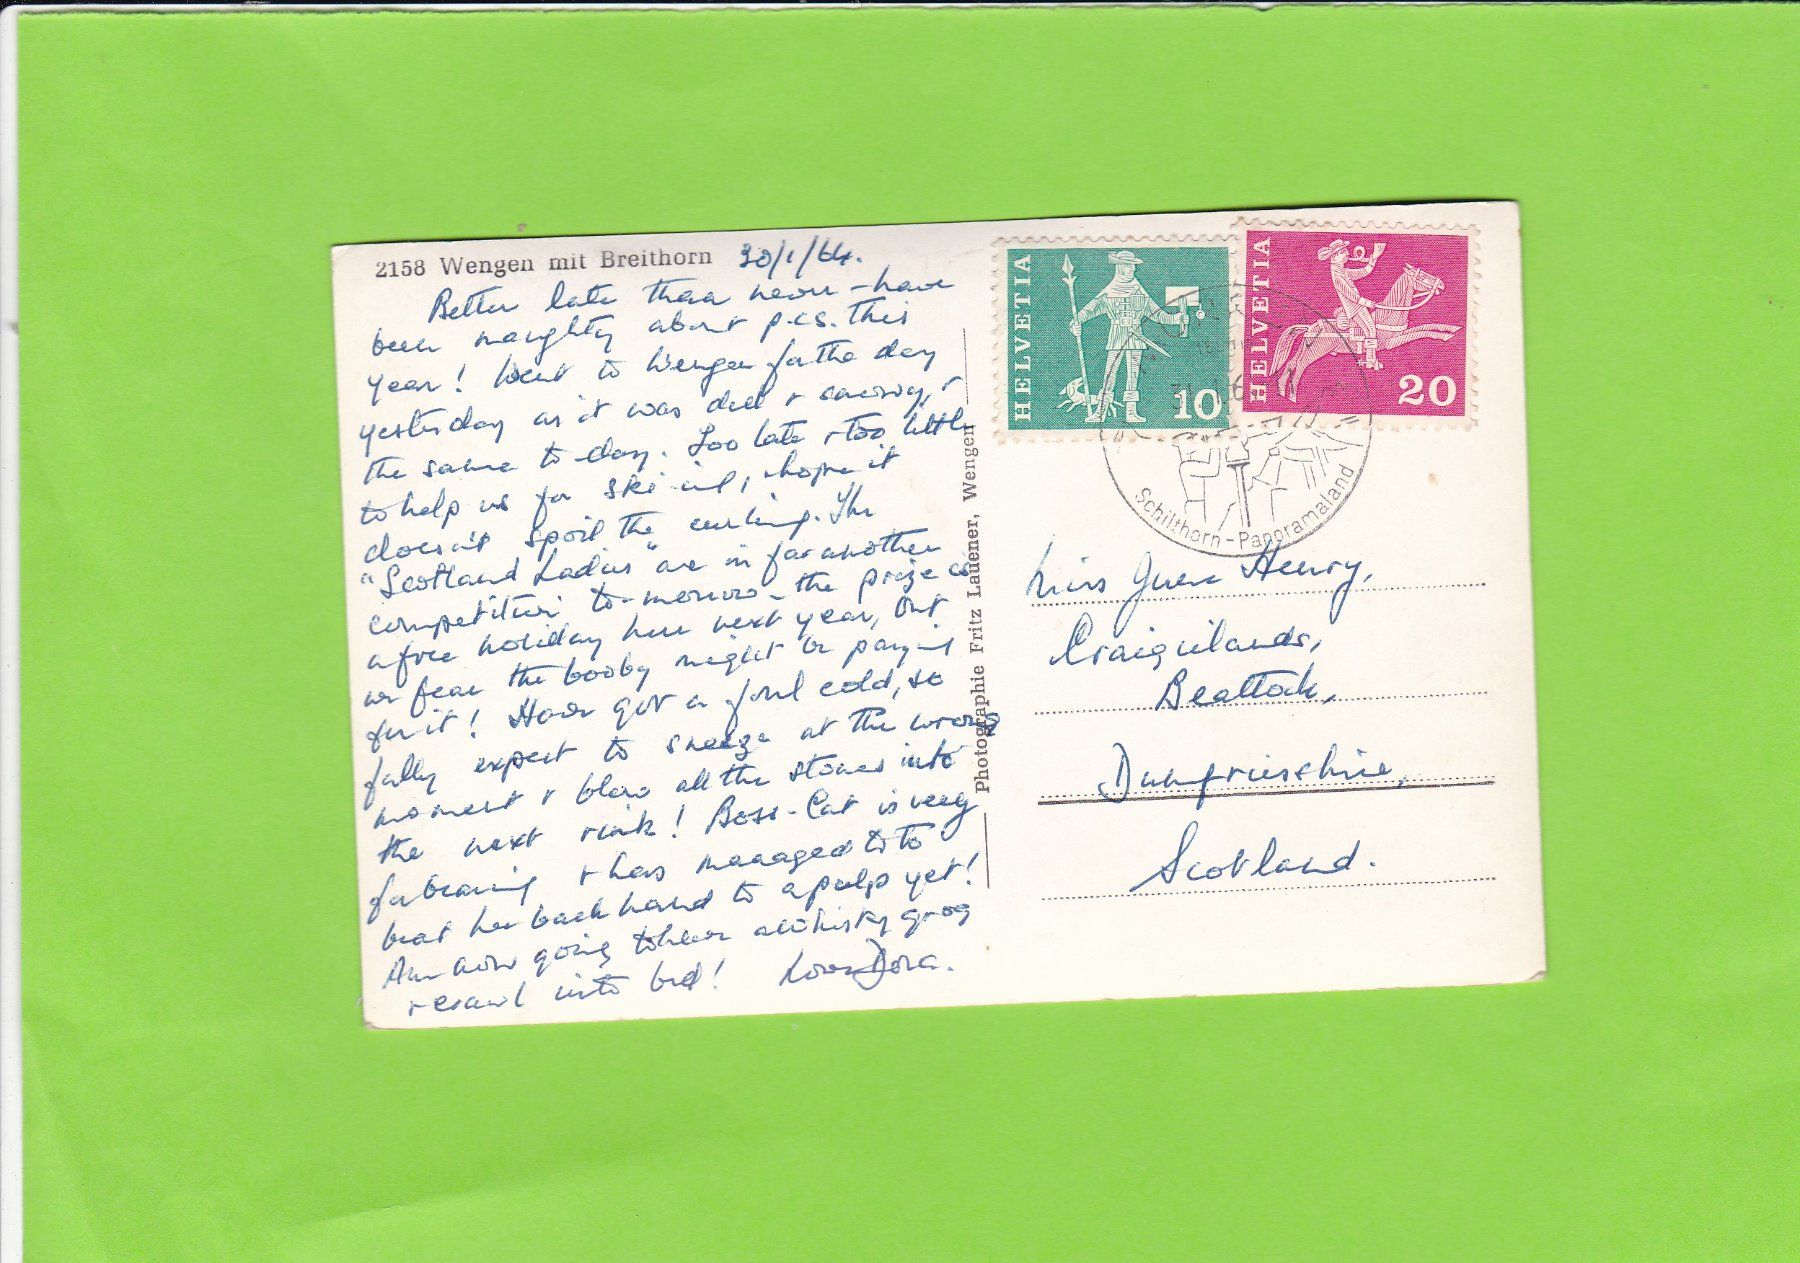 2158 Wengen mit Breithorn 30/1/64.
Better late than never - have
been naughty about p.cs. this
year! Went to Wengen for the day
yesterday as it was dull & snowy, &
the same to-day. Too late & too little
to help us for ski-ing, & hope it
doesn't spoil the curling. The
"Scotland Ladies" are in for another
competition to-morrow - the prize is
a free holiday here next year, but
we fear the booby might be paying
for it! Have got a foul cold, so
fully expect to sneeze at the wrong
moment & blow all the stones into
the next rink! Boss-Cat is very
forbearing & has managed to to
beat her back hand to a pulp yet!
Am now going to have a whisky grog
& crawl into bed! Love Dora.
Photographie Fritz Lauener, Wengen
HELVETIA 10
HELVETIA 20
Schilthorn - Panoramaland
Miss June Henry,
Craigielands,
Beattock,
Dumfriesshire,
Scotland.